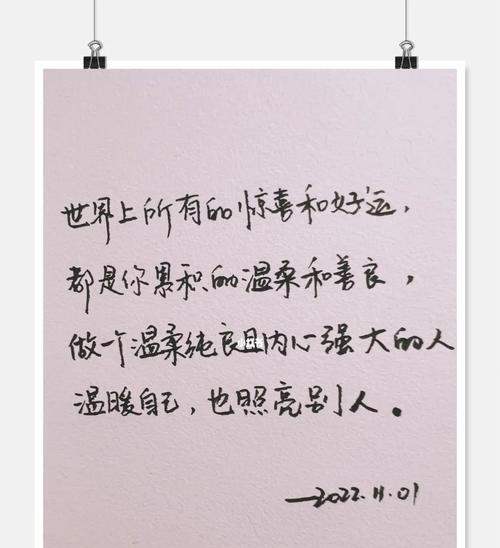 世界上所有的惊喜和好运，
都是你累积的温柔和善良，
做个温柔纯良且内心强大的人
温暖自己，也照亮别人。
—2022.11.01